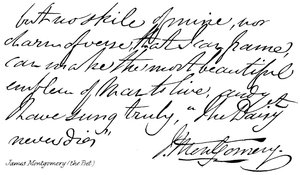 but no skill of mine, nor
charm of verse that I can frame,
can make the most beautiful
emblem of Man to live, and yet
I have sung truly, "The Daisy
never dies"
J. Montgomery.
James Montgomery (the Poet)